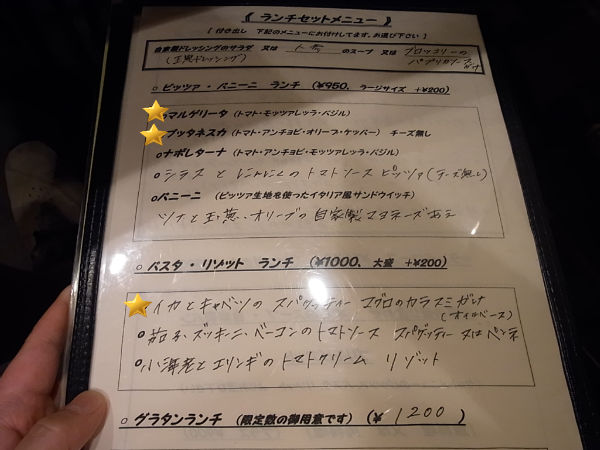 《 ランチセットメニュー 》
[ 付き出し 下記のメニューにお付けしてます。お選び下さい ]
自家製ドレッシングのサラダ 又は のスープ 又は ブロッコリーの
(玉葱ドレッシング) パプリカソースがけ
○ ピッツァ・パニーニ ランチ (¥950、ラージサイズ +¥200)
マルゲリータ (トマト・モッツァレッラ・バジル)
プッタネスカ (トマト・アンチョビ・オリーブ・ケッパー) チーズ無し
○ナポレターナ (トマト・アンチョビ・モッツァレッラ・バジル)
○シラス と にんにくの トマトソース ピッツァ(チーズ無し)
○パニーニ (ピッツァ生地を使ったイタリア風サンドウイッチ)
ツナと玉葱、オリーブの自家製マヨネーズあえ
○ パスタ・リゾット ランチ (¥1000、大盛 +¥200)
イカとキャベツの スパゲッティー マグロのカラスミがけ
(オイルベース)
○茄子、ズッキーニ、ベーコンのトマトソース スパゲッティー 又は ペンネ
○小海老とエリンギのトマトクリーム リゾット
○ グラタンランチ (限定数の御用意です) (¥ 1200 )